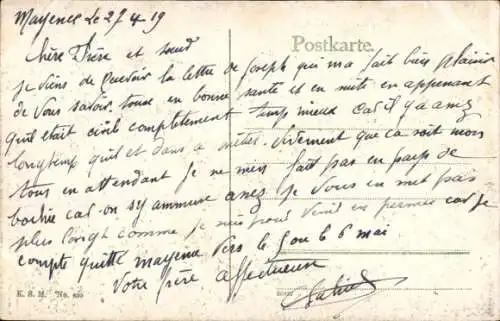 Mayence le 27 4 19
Postkarte.
Chère Frère et sœur
je viens de recevoir la lettre de Joseph qui m'a fait bien plaisir
de vous savoir tous en bonne santé et en suite en apprenant
qu'il était civil complètement temps mieux car il y a assez
longtemp qu'il et dans a métier. vivement que ca soit mon
tous en attendant je ne m'en fait pas en pays de
bochie car on s'y ammuse assez je vous en met pas
plus long comme je vous venir en permes car je
compte quitté mayence vers le 5 ou le 6 mai
votre frère affectueux
K. S. M. No. 899